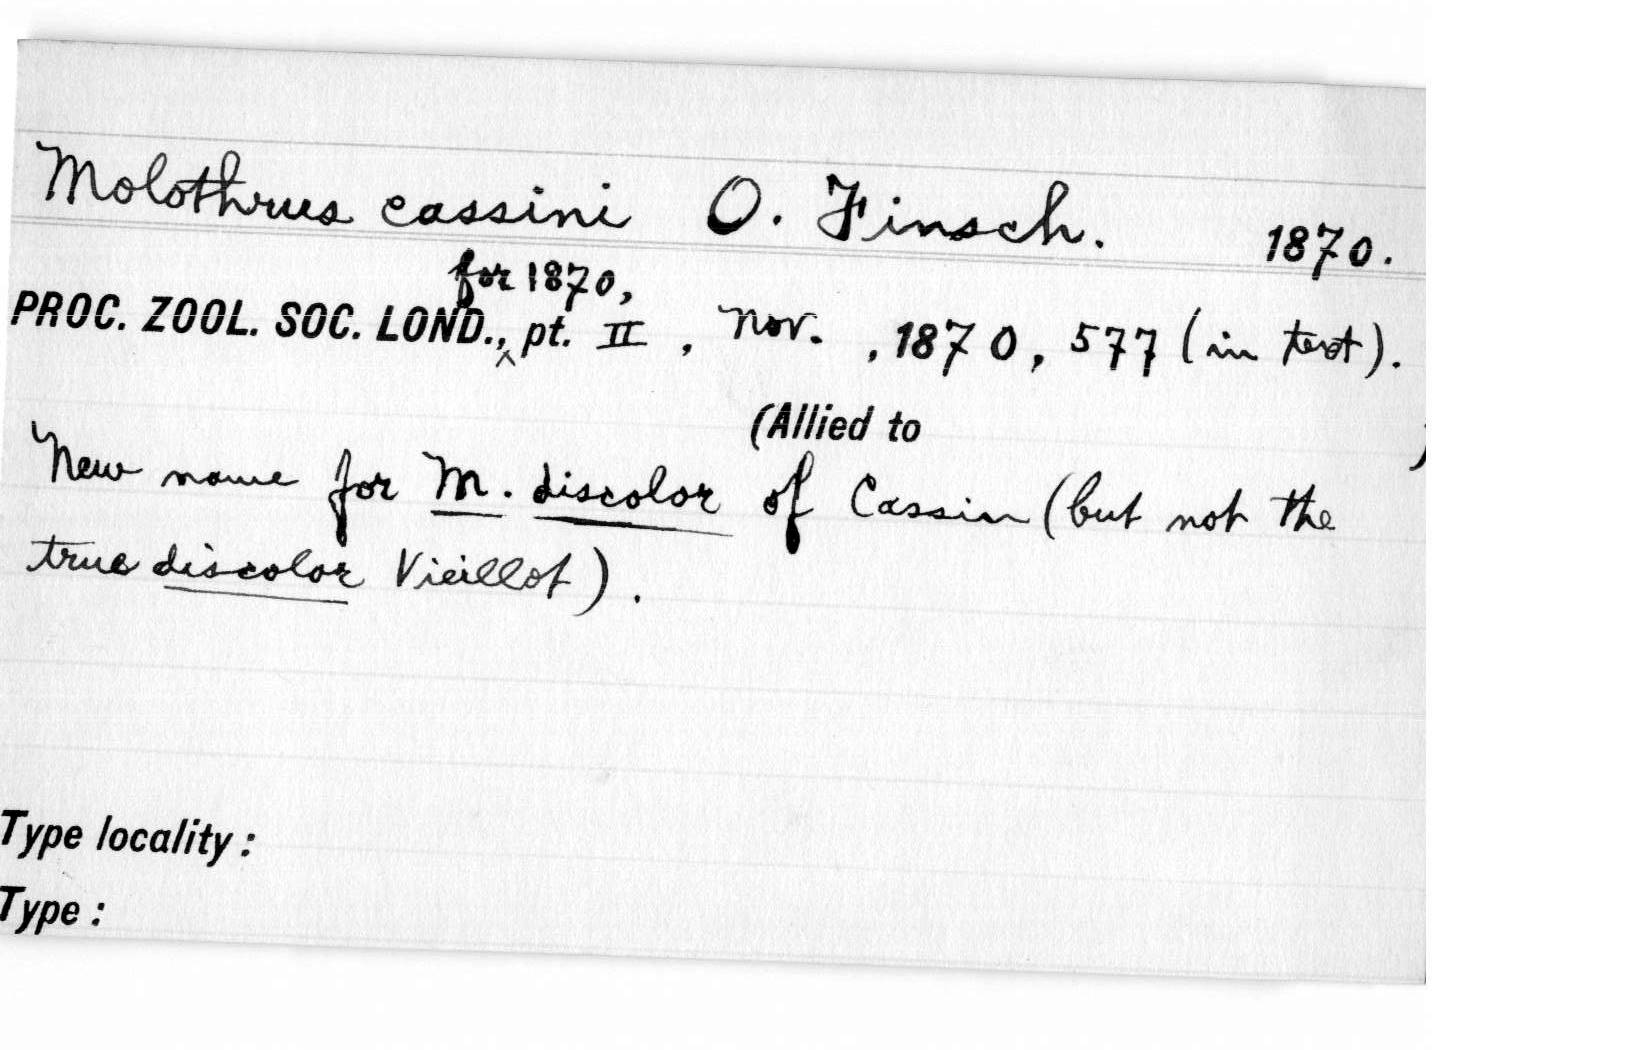 Molothrus cassini O. Finsch. 1870.
for 1870,
PROC. ZOOL. SOC. LOND., ^ pt. II , Nov. , 1870, 577 (in text).
(Allied to )
New name for M. discolor of Cassin (but not the
true discolor Vieillot).
Type locality :
Type :